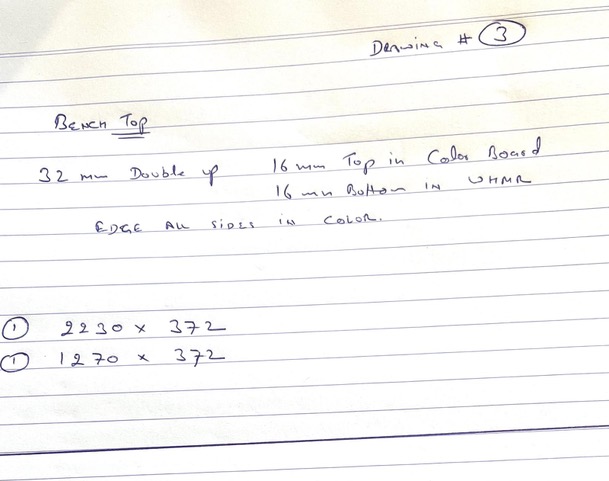 Drawing # 3
Bench Top
32 mm Double up 16 mm Top in Color Board
16 mm Bottom in WHMR
EDGE All SIDES in COLOR.
1 2230 x 372
1 1270 x 372